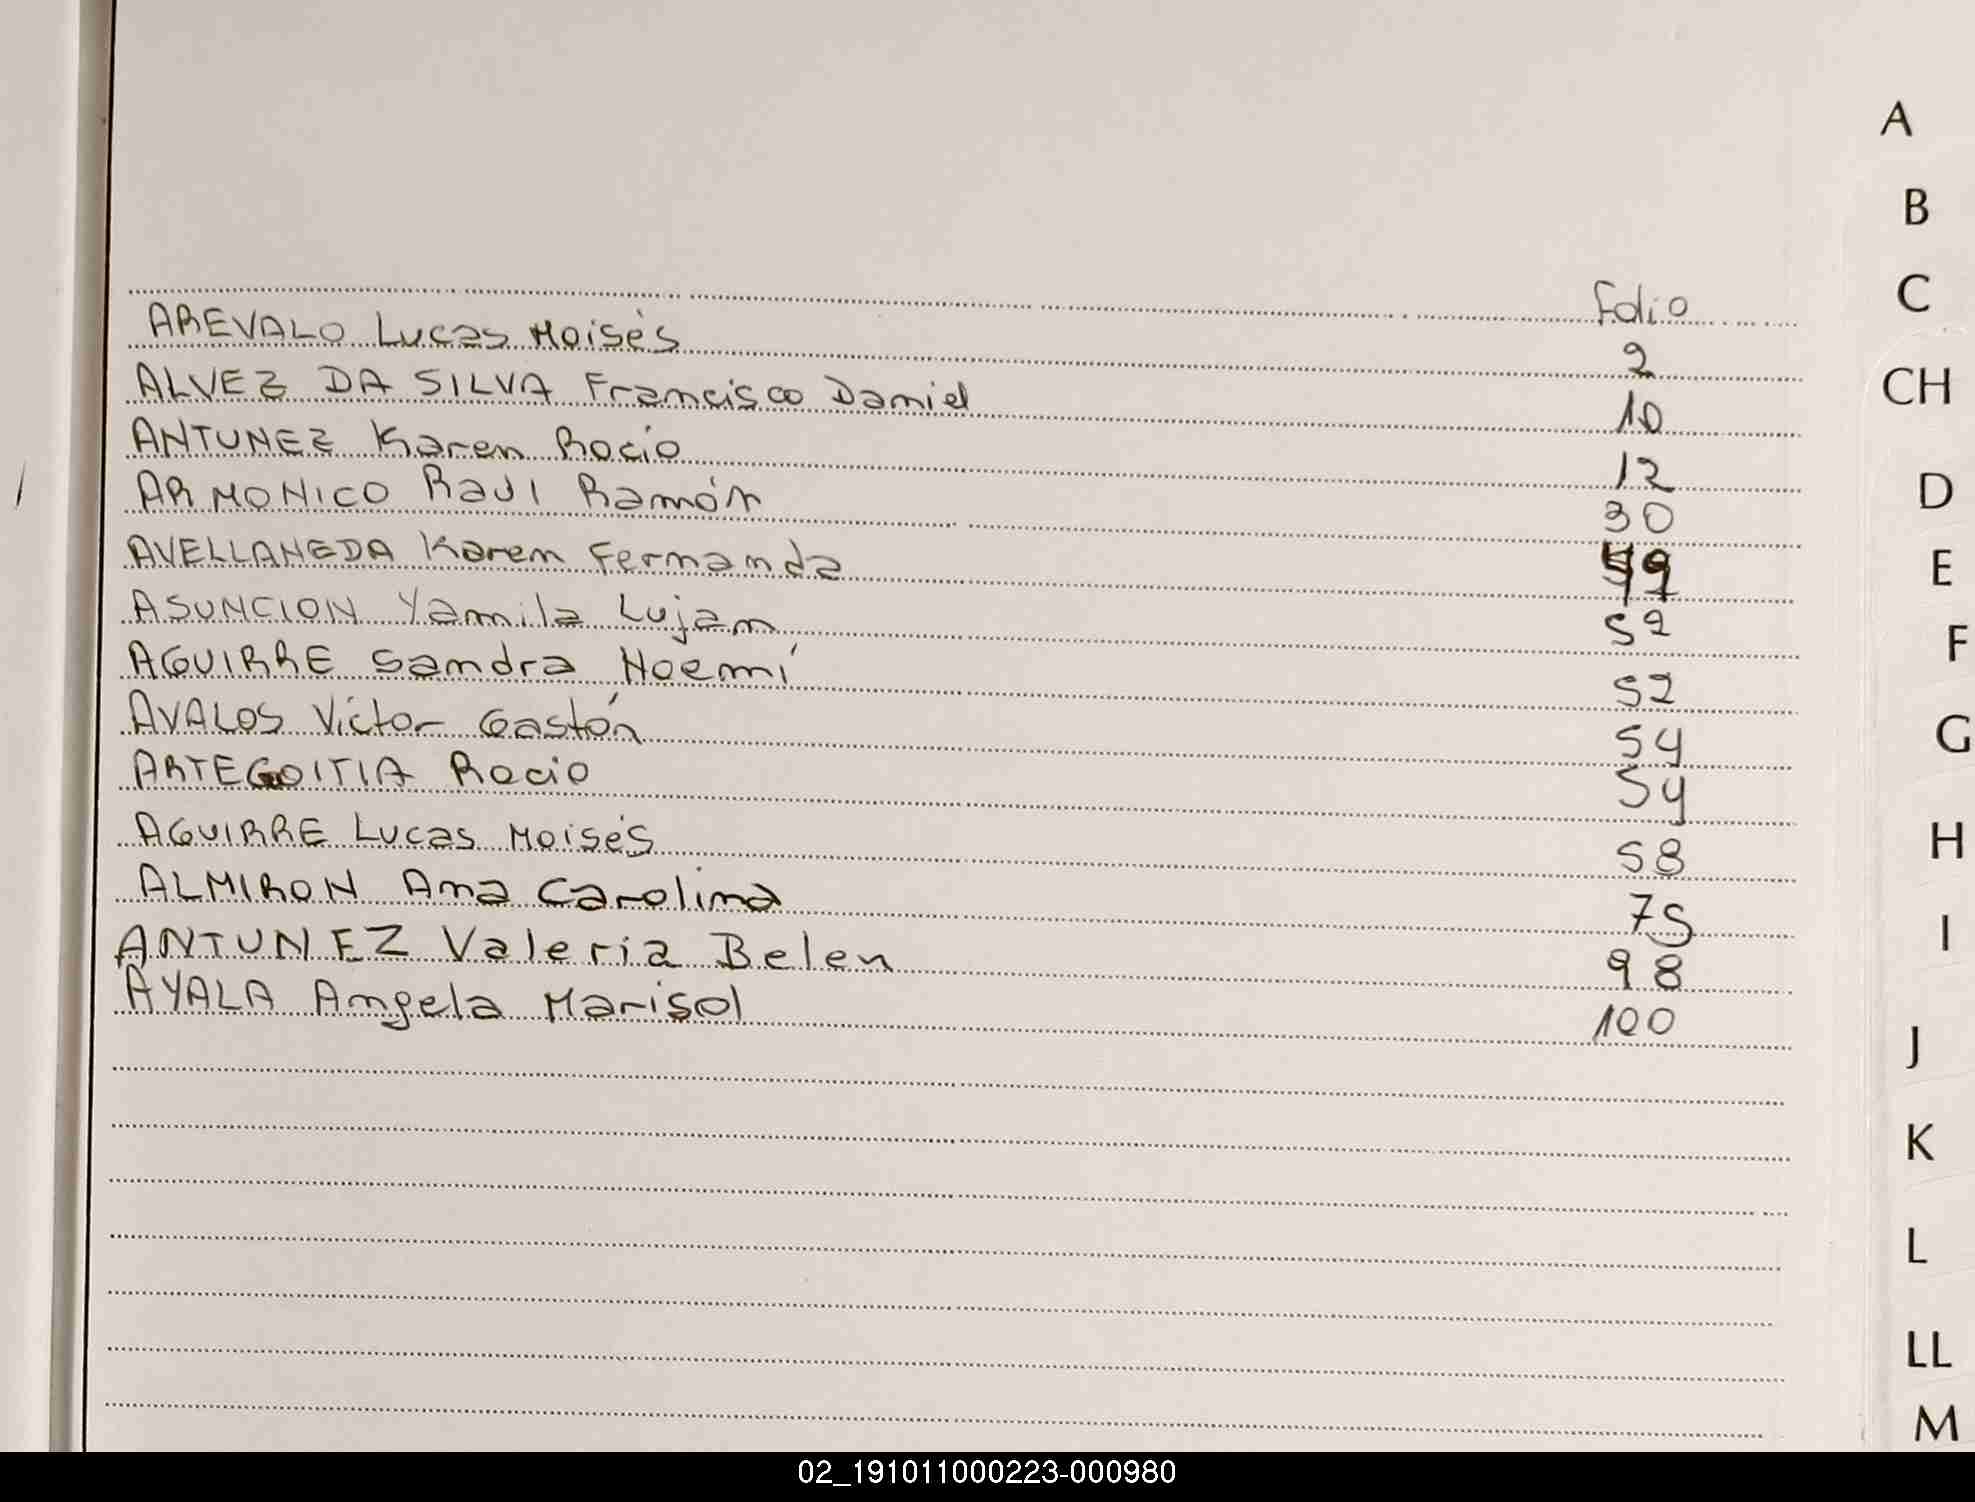 Folio
AREVALO Lucas Moisés 2
ALVEZ DA SILVA Francisco Daniel 10
ANTUNEZ Karen Rocío 12
ARMONICO Raul Ramón 30
AVELLANEDA Karem Fernanda 49
ASUNCION Yamila Lujan 52
AGUIRRE Sandra Noemí 52
AVALOS Víctor Gastón 54
ARTEGOITIA Rocio 54
AGUIRRE Lucas Moisés 58
ALMIRON Ana Carolina 75
ANTUNEZ Valeria Belen 98
AYALA Angela Marisol 100
A
B
C
CH
D
E
F
G
H
I
J
K
L
LL
M
02_191011000223-000980